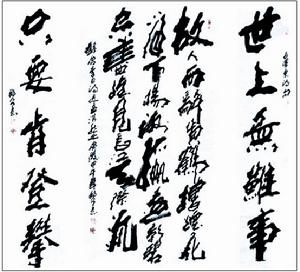 世上無難事
毛澤東詩句
故人西辭黃鶴樓煙花
三月下揚州孤帆遠影碧
空盡唯見長江天際流
只要肯登攀